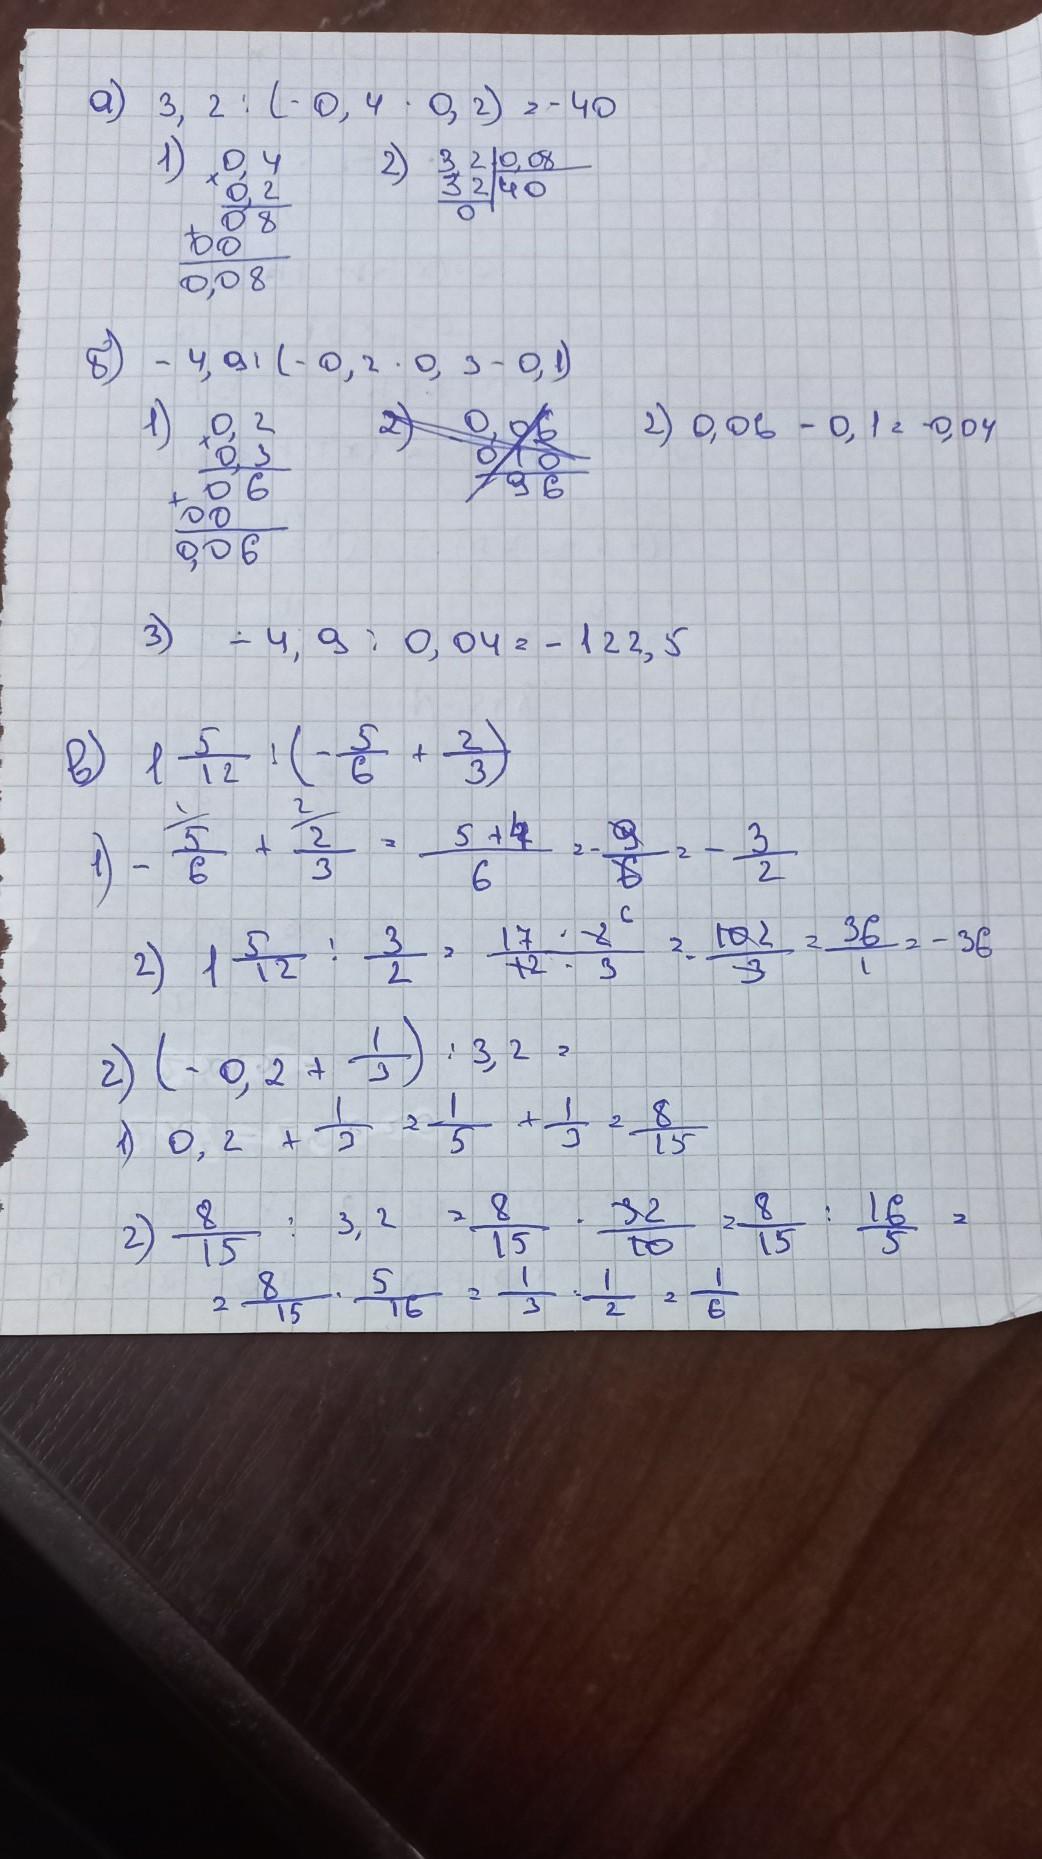 а) 3,2 : (-0,4 · 0,2) = -40
1) 0,4 2) 3,2 | 0,08
× 0,2 32 | 40
+ 08 0
00
0,08
б) -4,9 : (-0,2 · 0,3 - 0,1)
1) 0,2 2) 0,06 2) 0,06 - 0,1 = -0,04
× 0,3 0,10
+ 06 96
00
0,06
3) -4,9 : 0,04 = -122,5
в) 1 5/12 : (-5/6 + 2/3)
1) - 5/6 + 2/3 = 5+4/6 = -9/6 = -3/2
2) 1 5/12 : 3/2 = 17 · 2/12 · 3 = -102/3 = 36/1 = -36
г) (-0,2 + 1/3) : 3,2 =
1) 0,2 + 1/3 = 1/5 + 1/3 = 8/15
2) 8/15 : 3,2 = 8/15 · 32/10 = 8/15 : 16/5 =
= 8/15 · 5/16 = 1/3 · 1/2 = 1/6